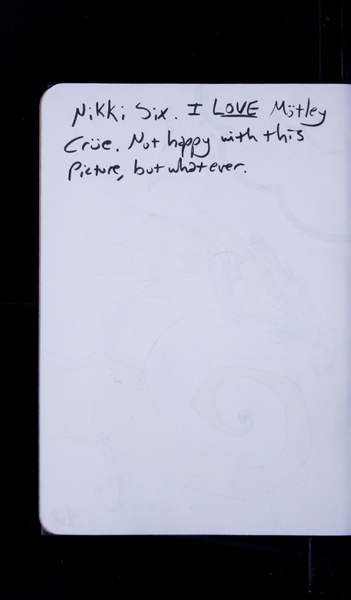 Nikki Six. I LOVE Mötley
Crüe. Not happy with this
Picture, but whatever.